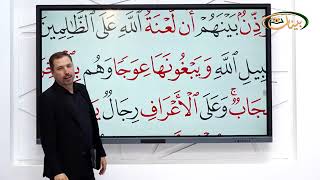 بينات
ذِّنٌۢ بَيْنَهُمْ أَن لَّعْنَةُ ٱللَّهِ عَلَى ٱلظَّٰلِمِينَ
بِيلِ ٱللَّهِ وَيَبْغُونَهَا عِوَجًا وَهُم
جَابٌ ۚ وَعَلَى ٱلْأَعْرَافِ رِجَالٌ يَ